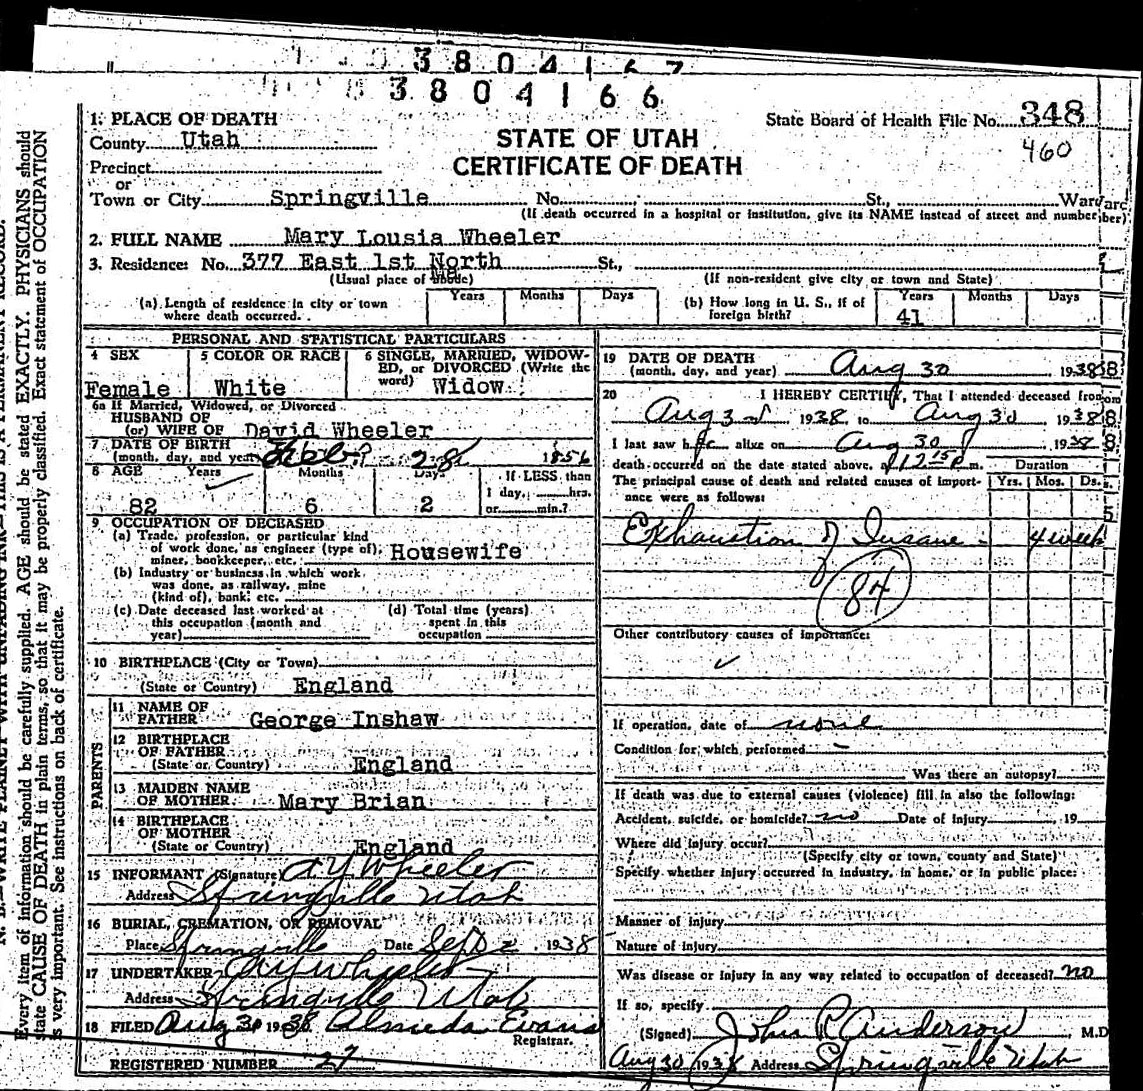 3804167
3804166
1. PLACE OF DEATH
County Utah
STATE OF UTAH
CERTIFICATE OF DEATH
State Board of Health File No. 348
460
Precinct
or
Town or City Springville No. St., Ward
(If death occurred in a hospital or institution, give its NAME instead of street and number)
2. FULL NAME Mary Lousia Wheeler
3. Residence: No. 377 East 1st North St.,
(Usual place of abode) (If non-resident give city or town and State)
(a) Length of residence in city or town where death occurred. Years Months Days
(b) How long in U. S., if of foreign birth? Years 41 Months Days
PERSONAL AND STATISTICAL PARTICULARS
4 SEX Female
5 COLOR OR RACE White
6 SINGLE, MARRIED, WIDOWED, or DIVORCED (Write the word) Widow
6a If Married, Widowed, or Divorced
HUSBAND OF
(or) WIFE OF David Wheeler
7 DATE OF BIRTH
(month, day, and year) Feb. 28 1856
8 AGE Years 82 Months 6 Days 2
If LESS than
1 day, hrs.
or min.?
9 OCCUPATION OF DECEASED
(a) Trade, profession, or particular kind
of work done, as engineer (type of), Housewife
miner, bookkeeper, etc.
(b) Industry or business in which work
was done, as railway, mine
(kind of), bank, etc.
(c) Date deceased last worked at
this occupation (month and
year)
(d) Total time (years)
spent in this
occupation
10 BIRTHPLACE (City or Town)
(State or Country) England
PARENTS
11 NAME OF
FATHER George Inshaw
12 BIRTHPLACE
OF FATHER
(State or Country) England
13 MAIDEN NAME
OF MOTHER Mary Brian
14 BIRTHPLACE
OF MOTHER
(State or Country) England
15 INFORMANT (Signature) A Y Wheeler
Address Springville Utah
16 BURIAL, CREMATION, OR REMOVAL
Place Springville Date Sept 2, 1938
17 UNDERTAKER A Y Wheeler
Address Springville Utah
18 FILED Aug 30 1938 Almeda Evans
Registrar.
REGISTERED NUMBER 27
19 DATE OF DEATH
(month, day, and year) Aug 30 1938
20 I HEREBY CERTIFY, That I attended deceased from
Aug 3 1938 to Aug 30 1938
I last saw h alive on Aug 30 1938
death occurred on the date stated above, at 12 15 p.m.
Duration
The principal cause of death and related causes of importance were as follows: Yrs. Mos. Ds.
Exhaustion of Insane 4 week
84
Other contributory causes of importance:
If operation, date of none
Condition for which performed
Was there an autopsy?
If death was due to external causes (violence) fill in also the following:
Accident, suicide, or homicide? no Date of injury , 19
Where did injury occur?
(Specify city or town, county and State)
Specify whether injury occurred in industry, in home, or in public place:
Manner of injury
Nature of injury
Was disease or injury in any way related to occupation of deceased? no
If so, specify
(Signed) John R Anderson M.D
Aug 30 1938 Address Springville Utah
N. B.—WRITE PLAINLY WITH UNFADING INK—THIS IS A PERMANENT RECORD.
Every item of information should be carefully supplied. AGE should be stated EXACTLY. PHYSICIANS should
state CAUSE OF DEATH in plain terms, so that it may be properly classified. Exact statement of OCCUPATION
is very important. See instructions on back of certificate.